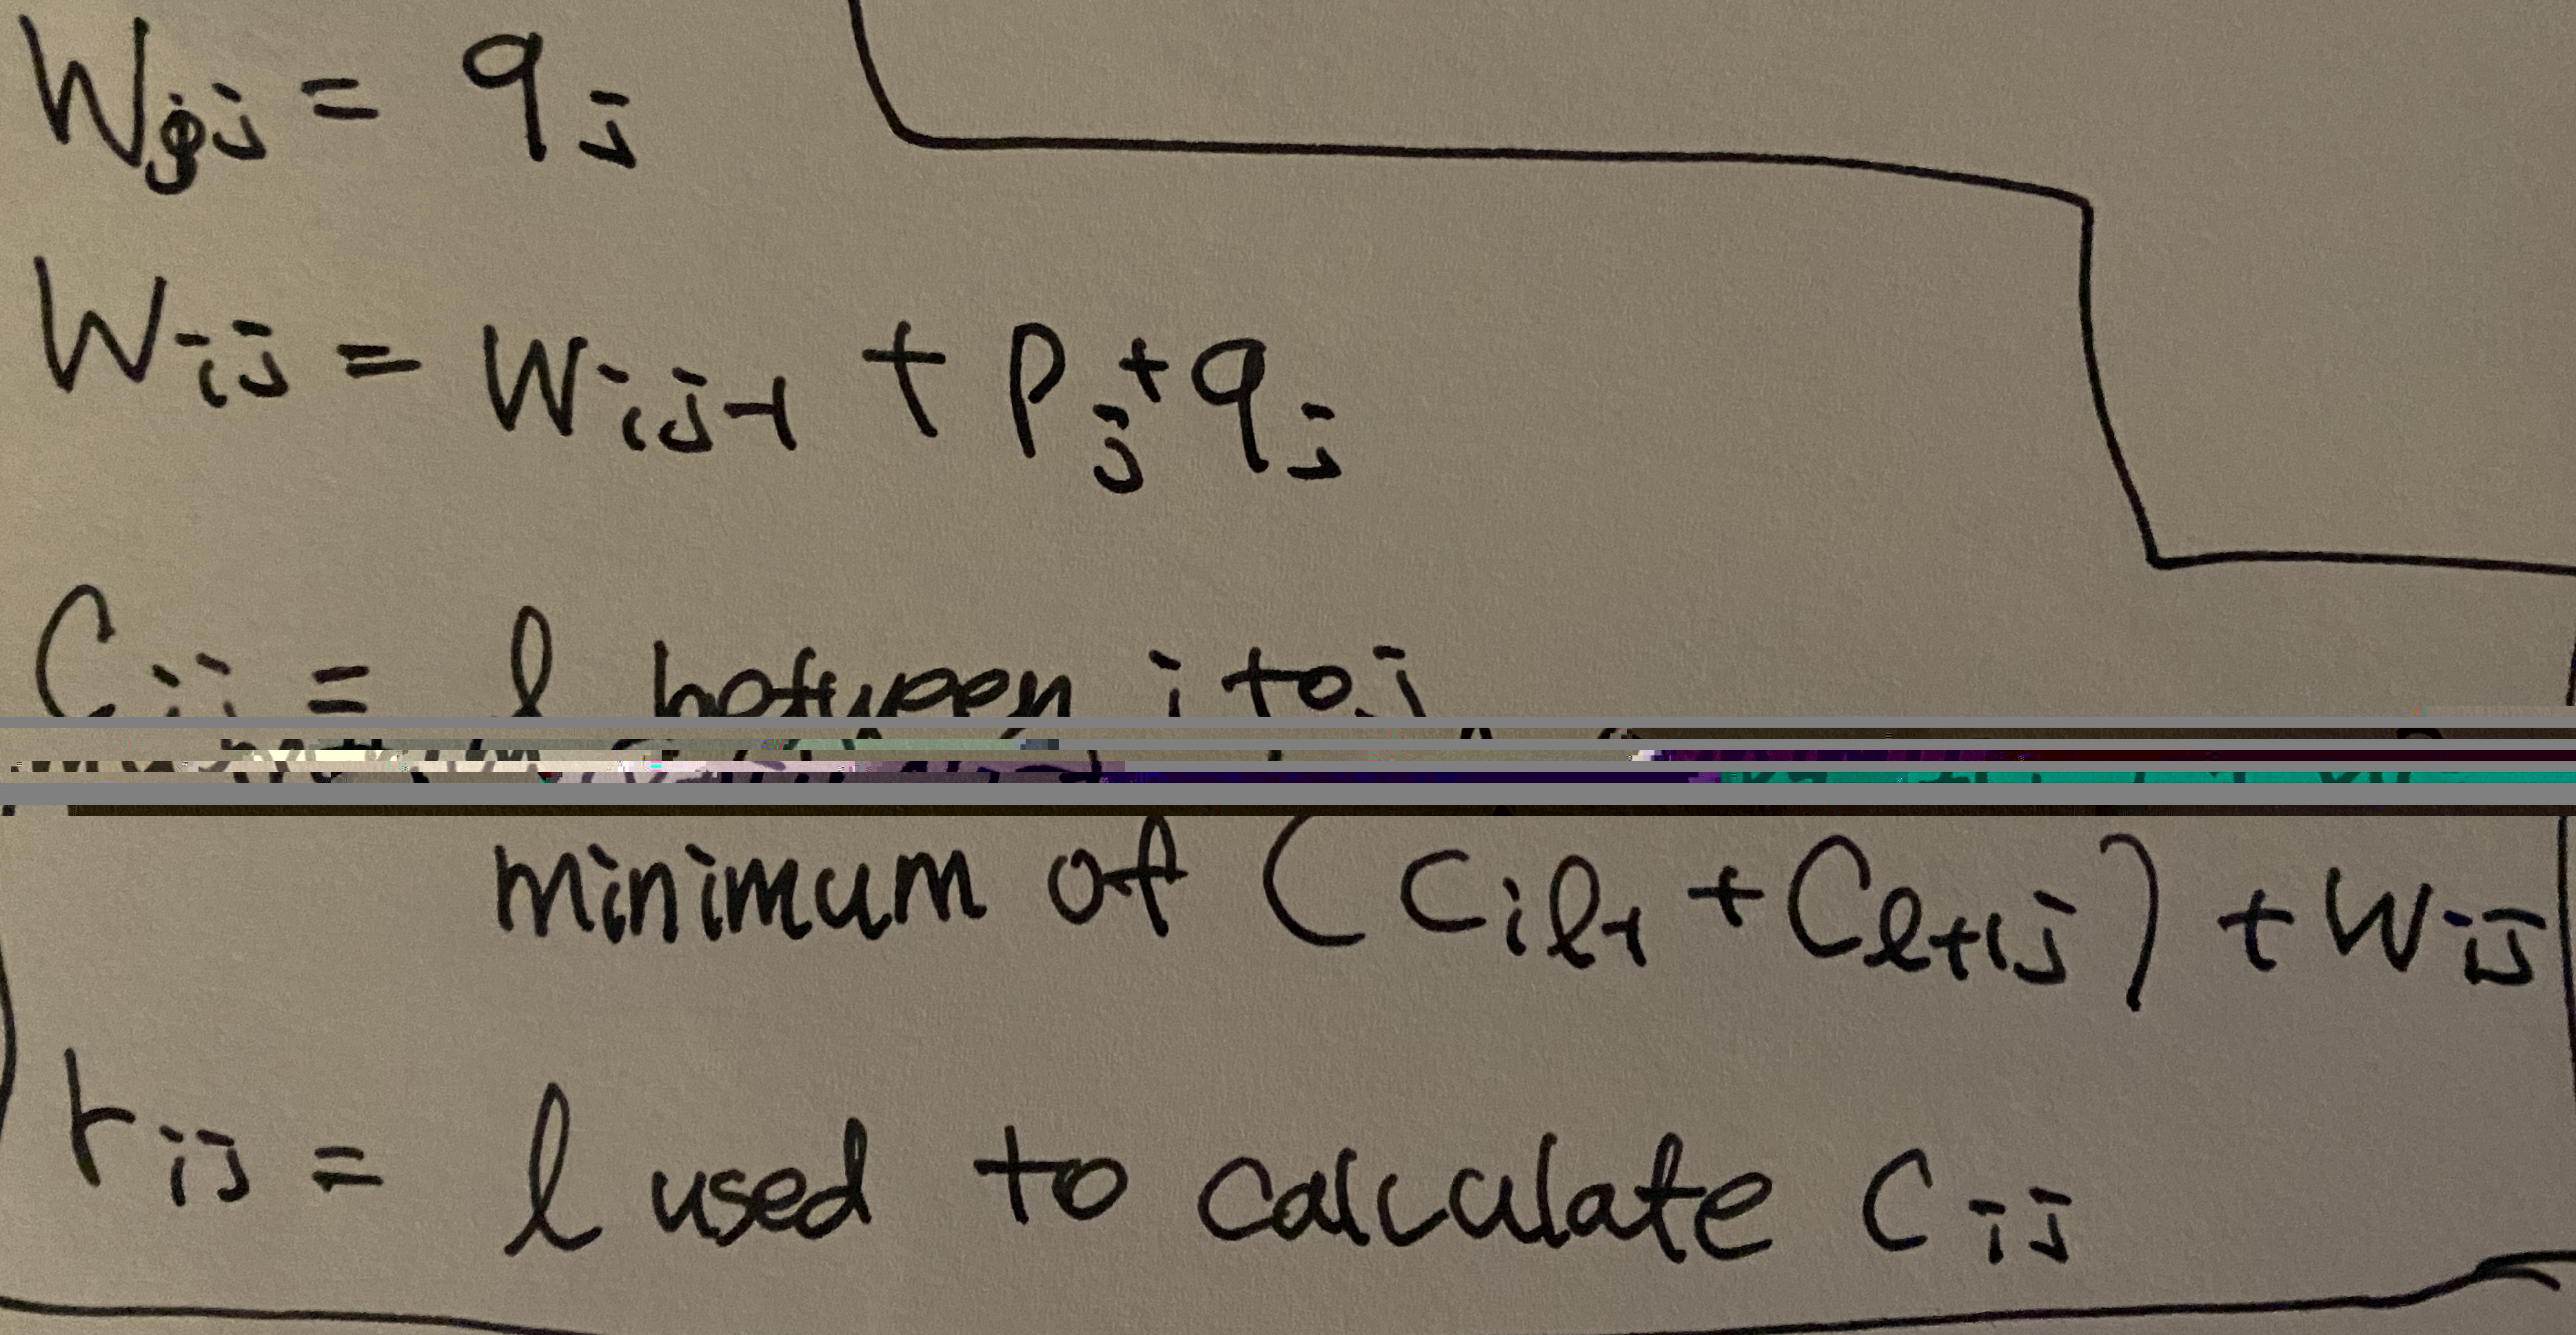 Wjj = qj
Wij = Wij-1 + Pj + qj
Cij = l between i to j
minimum of (Cil-1 + Cl+1j) + Wij
rij = l used to calculate Cij